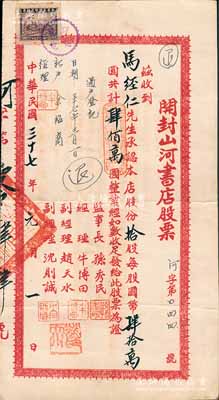 開封山河書店股票
茲收到
馬經仁先生承認本店股份拾股每股國幣肆拾萬
圓共計肆佰萬圓整業經如數收足發給此股票為證
監事長 孫秀民
經理 牛傳田
副經理 趙天水
副經理 沈則誠
過戶登記
日期
中華民國三十七年元月一日